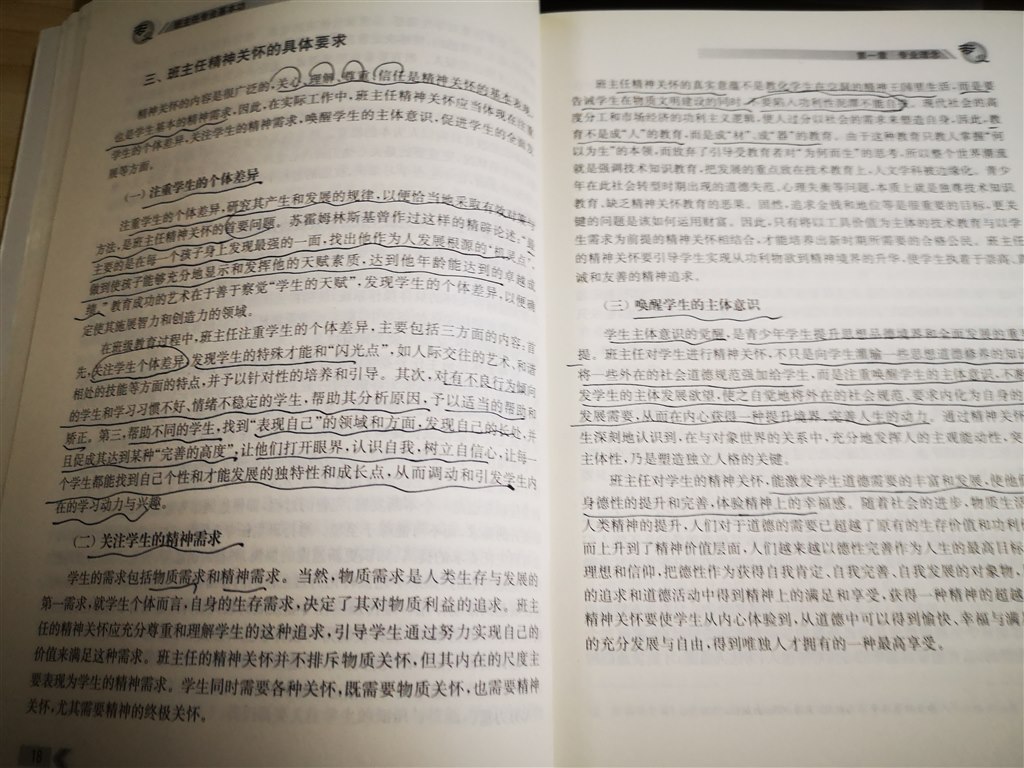 班主任专业基本功
三、班主任精神关怀的具体要求
精神关怀的内容是很广泛的,关心、理解、尊重、信任是精神关怀的基本表现,
也是学生基本的精神需求,因此,在实际工作中,班主任精神关怀应当体现在注重
学生的个体差异,关注学生的精神需求,唤醒学生的主体意识,促进学生的全面发
展等方面。
(一)注重学生的个体差异
注重学生的个体差异,研究其产生和发展的规律,以便恰当地采取有效对策与
方法,是班主任精神关怀的首要问题。苏霍姆林斯基曾作过这样的精辟论述:“最
主要的是在每一个孩子身上发现最强的一面,找出他作为人发展根源的‘机灵点’,
做到使孩子能够充分地显示和发挥他的天赋素质,达到他年龄能达到的卓越成
绩。”教育成功的艺术在于善于察觉“学生的天赋”,发现学生的个体差异,以便确
定使其施展智力和创造力的领域。
在班级教育过程中,班主任注重学生的个体差异,主要包括三方面的内容:首
先,关注学生个体差异,发现学生的特殊才能和“闪光点”,如人际交往的艺术、和谐
相处的技能等方面的特点,并予以针对性的培养和引导。其次,对有不良行为倾向
的学生和学习习惯不好、情绪不稳定的学生,帮助其分析原因,予以适当的帮助和
矫正。第三,帮助不同的学生,找到“表现自己”的领域和方面,发现自己的长处,并
且促成其达到某种“完善的高度”,让他们打开眼界,认识自我,树立自信心,让每一
个学生都能找到自己个性和才能发展的独特性和成长点,从而调动和引发学生内
在的学习动力与兴趣。
(二)关注学生的精神需求
学生的需求包括物质需求和精神需求。当然,物质需求是人类生存与发展的
第一需求,就学生个体而言,自身的生存需求,决定了其对物质利益的追求。班主
任的精神关怀应充分尊重和理解学生的这种追求,引导学生通过努力实现自己的
价值来满足这种需求。班主任的精神关怀并不排斥物质关怀,但其内在的尺度主
要表现为学生的精神需求。学生同时需要各种关怀,既需要物质关怀,也需要精神
关怀,尤其需要精神的终极关怀。
18
第一章 专业理念
班主任精神关怀的真实意蕴不是教化学生在空洞的精神王国里生活,而是要
告诫学生在物质文明建设的同时,不要陷入功利性泥潭不能自拔。现代社会的高
度分工和市场经济的功利主义逻辑,使人过分以社会的需求来塑造自身,因此,教
育不是成“人”的教育,而是成“材”、成“器”的教育。由于这种教育只教人掌握“何
以为生”的本领,而放弃了引导受教育者对“为何而生”的思考,所以整个世界潮流
就是强调技术知识教育,把发展的重点放在技术教育上,人文学科被边缘化。青少
年在此社会转型时期出现的道德失范、心理失衡等问题,本质上就是独尊技术知识
教育,缺乏精神关怀教育的恶果。固然,追求金钱和地位等是很重要的目标,更关
键的问题是该如何运用财富。因此,只有将以工具价值为主体的技术教育与以学
生需求为前提的精神关怀相结合,才能培养出新时期所需要的合格公民。班主任
的精神关怀要引导学生实现从功利物欲到精神境界的升华,使学生执着于崇高、真
诚和友善的精神追求。
(三)唤醒学生的主体意识
学生主体意识的觉醒,是青少年学生提升思想品德境界和全面发展的重要
提。班主任对学生进行精神关怀,不只是向学生灌输一些思想道德修养的知识
将一些外在的社会道德规范强加给学生,而是注重唤醒学生的主体意识,不断
发学生的主体发展欲望,使之自觉地将外在的社会规范、要求内化为自身的
发展需要,从而在内心获得一种提升境界、完善人生的动力。通过精神关怀
生深刻地认识到,在与对象世界的关系中,充分地发挥人的主观能动性,突
主体性,乃是塑造独立人格的关键。
班主任对学生的精神关怀,能激发学生道德需要的丰富和发展,使他们
身德性的提升和完善,体验精神上的幸福感。随着社会的进步,物质生活
人类精神的提升,人们对于道德的需要已超越了原有的生存价值和功利价
而上升到了精神价值层面,人们越来越以德性完善作为人生的最高目标
理想和信仰,把德性作为获得自我肯定、自我完善、自我发展的对象物,
的追求和道德活动中得到精神上的满足和享受,获得一种精神的超越
精神关怀要使学生从内心体验到,从道德中可以得到愉快、幸福与满足
的充分发展与自由,得到唯独人才拥有的一种最高享受。